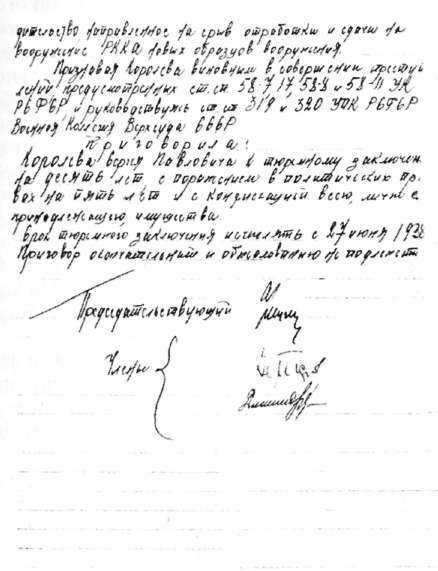 дительство направленное на срыв отработки и сдачи на
вооружение РККА новых образцов вооружения.
Признавая Королева виновным в совершении преступ
лений предусмотренных ст.ст. 58-7, 17, 58-8 и 58-11 УК
РСФСР и руководствуясь ст.ст 319 и 320 УПК РСФСР
Военная Коллегия Верхсуда СССР
Приговорила:
Королева Сергея Павловича к тюремному заключен
на десять лет с поражением в политических пр-
вах на пять лет и с конфискацией всего, лично е
принадлежащего имущества.
Срок тюремного заключения исчислять с 27 июня 1938
Приговор окончательный и обжалованию не подлежит
Председательствующий
Члены